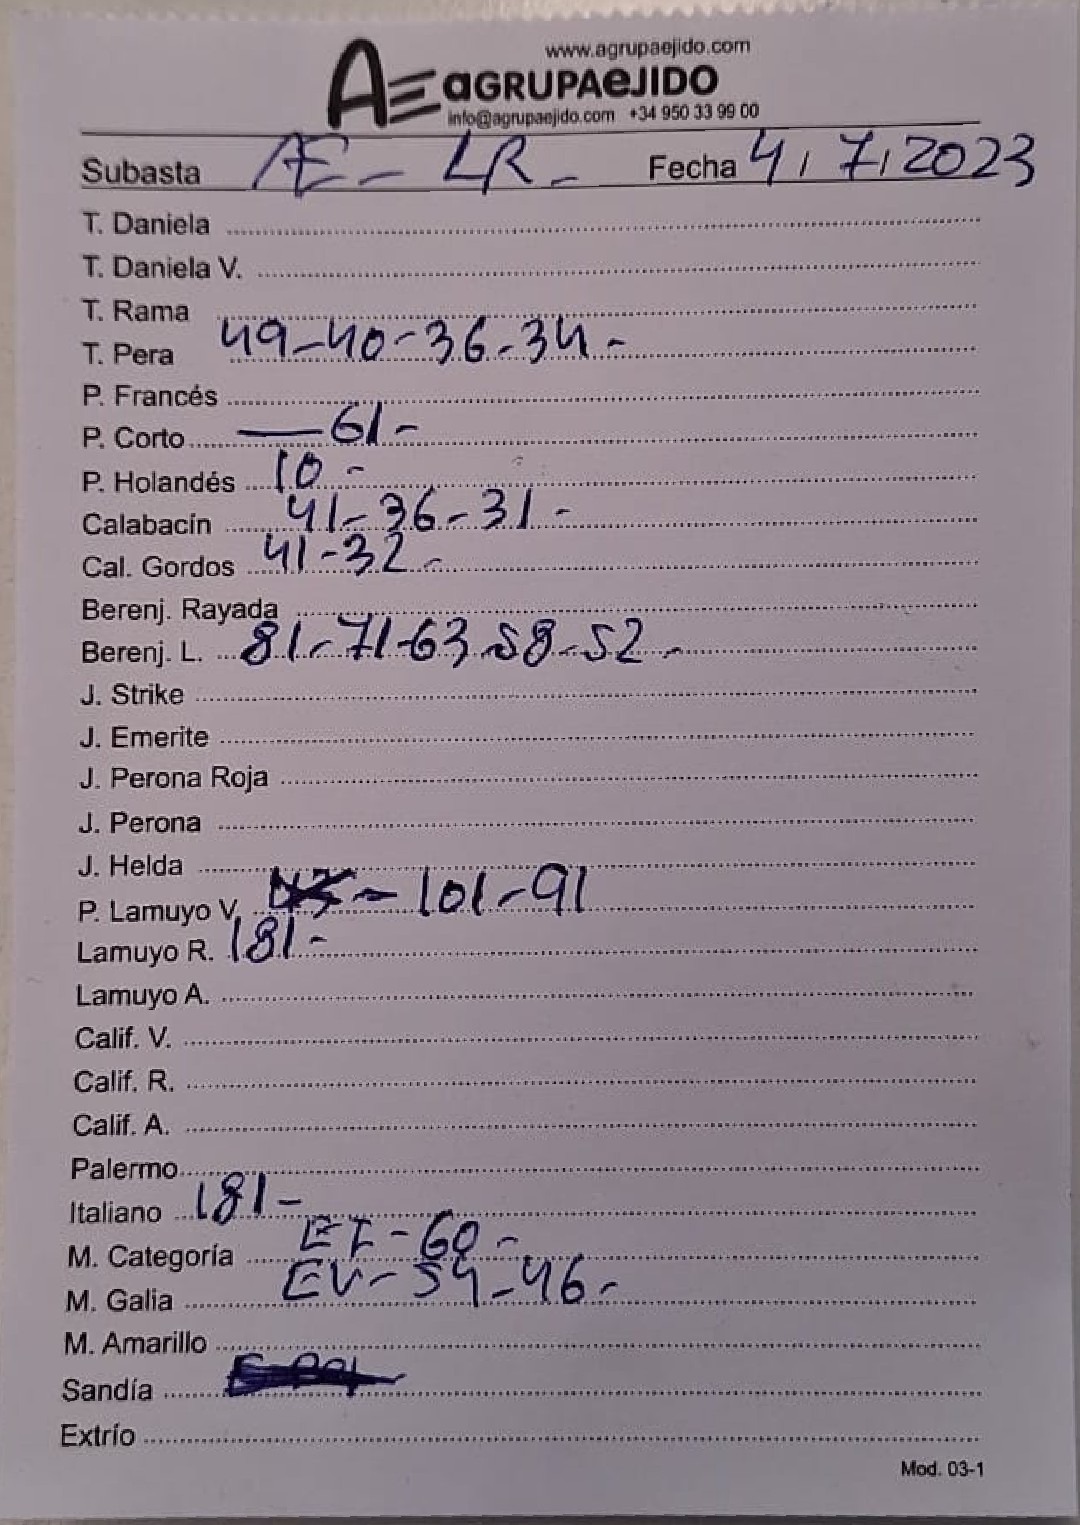 www.agrupaejido.com
AE aGRUPAeJIDO
info@agrupaejido.com +34 950 33 99 00
Subasta AE - LR - Fecha 4 / 7 / 2023
T. Daniela
T. Daniela V.
T. Rama
T. Pera 49-40-36-34-
P. Francés
P. Corto — 61-
P. Holandés 10 -
Calabacín 41-36-31-
Cal. Gordos 41-32-
Berenj. Rayada
Berenj. L. 81-71-63-58-52-
J. Strike
J. Emerite
J. Perona Roja
J. Perona
J. Helda
P. Lamuyo V. - 101-91
Lamuyo R. 181-
Lamuyo A.
Calif. V.
Calif. R.
Calif. A.
Palermo
Italiano 181-
M. Categoría - 60 -
M. Galia - 54-46-
M. Amarillo
Sandía
Extrío
Mod. 03-1